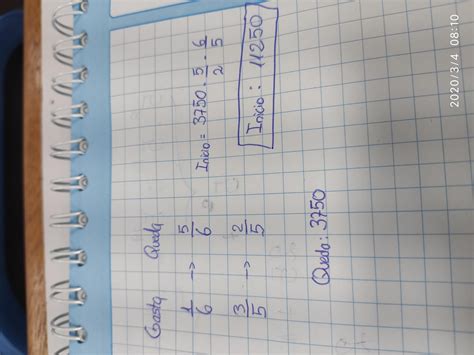 Gasta Queda
1/6 -> 5/6
3/5 -> 2/5
Quedo: 3750
Inicio = 3750 . 5/2 . 6/5
Inicio : 11250
2020/3/4 08:10